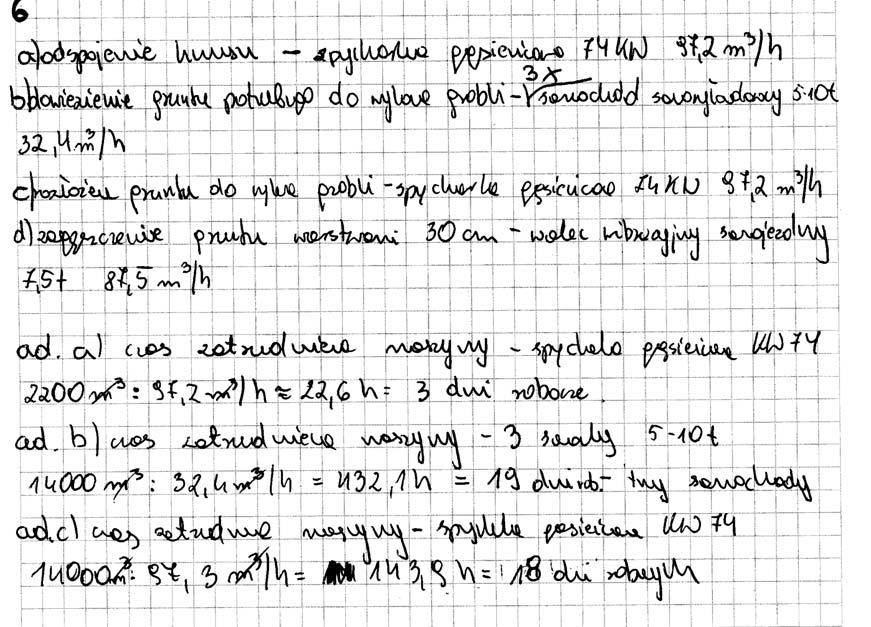 6
a) odspojenie humusu – spycharka gąsienicowa 74 KW 97,2 m³/h
b) dowiezienie gruntu potrzebnego do wylowe grobli – 3x samochód samowyładowczy 5-10t
32,4 m³/h
c) gruntu do grobli – spycharka 74 KW 97,2 m³/h
d) zagęszczenie gruntu warstwami 30 cm – walec wibracyjny samojezdny
7,5t 87,5 m³/h
ad. a) czas zatrudnienia maszyny – gąsienicowa KW 74
2200 m³ : 97,2 m³/h ≈ 22,6 h = 3 dni robocze.
ad. b) czas zatrudnienia maszyny – 3 5-10t
14000 m³ : 32,4 m³/h = 432,1 h = 19 dni rob. – trzy samochody
ad. c) czas maszyny – KW 74
14000 m³ : 97,3 m³/h = 143,9 h = 18 dni